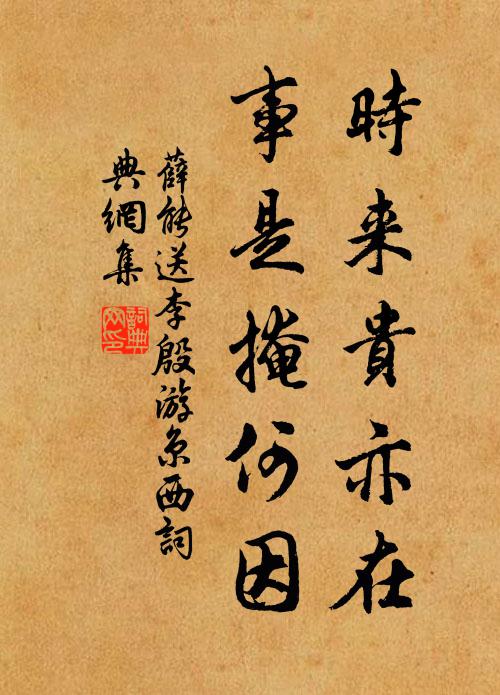 時来貴亦在
事是掩何因
薛能送李殷游京西詞
典網集
詞典網印